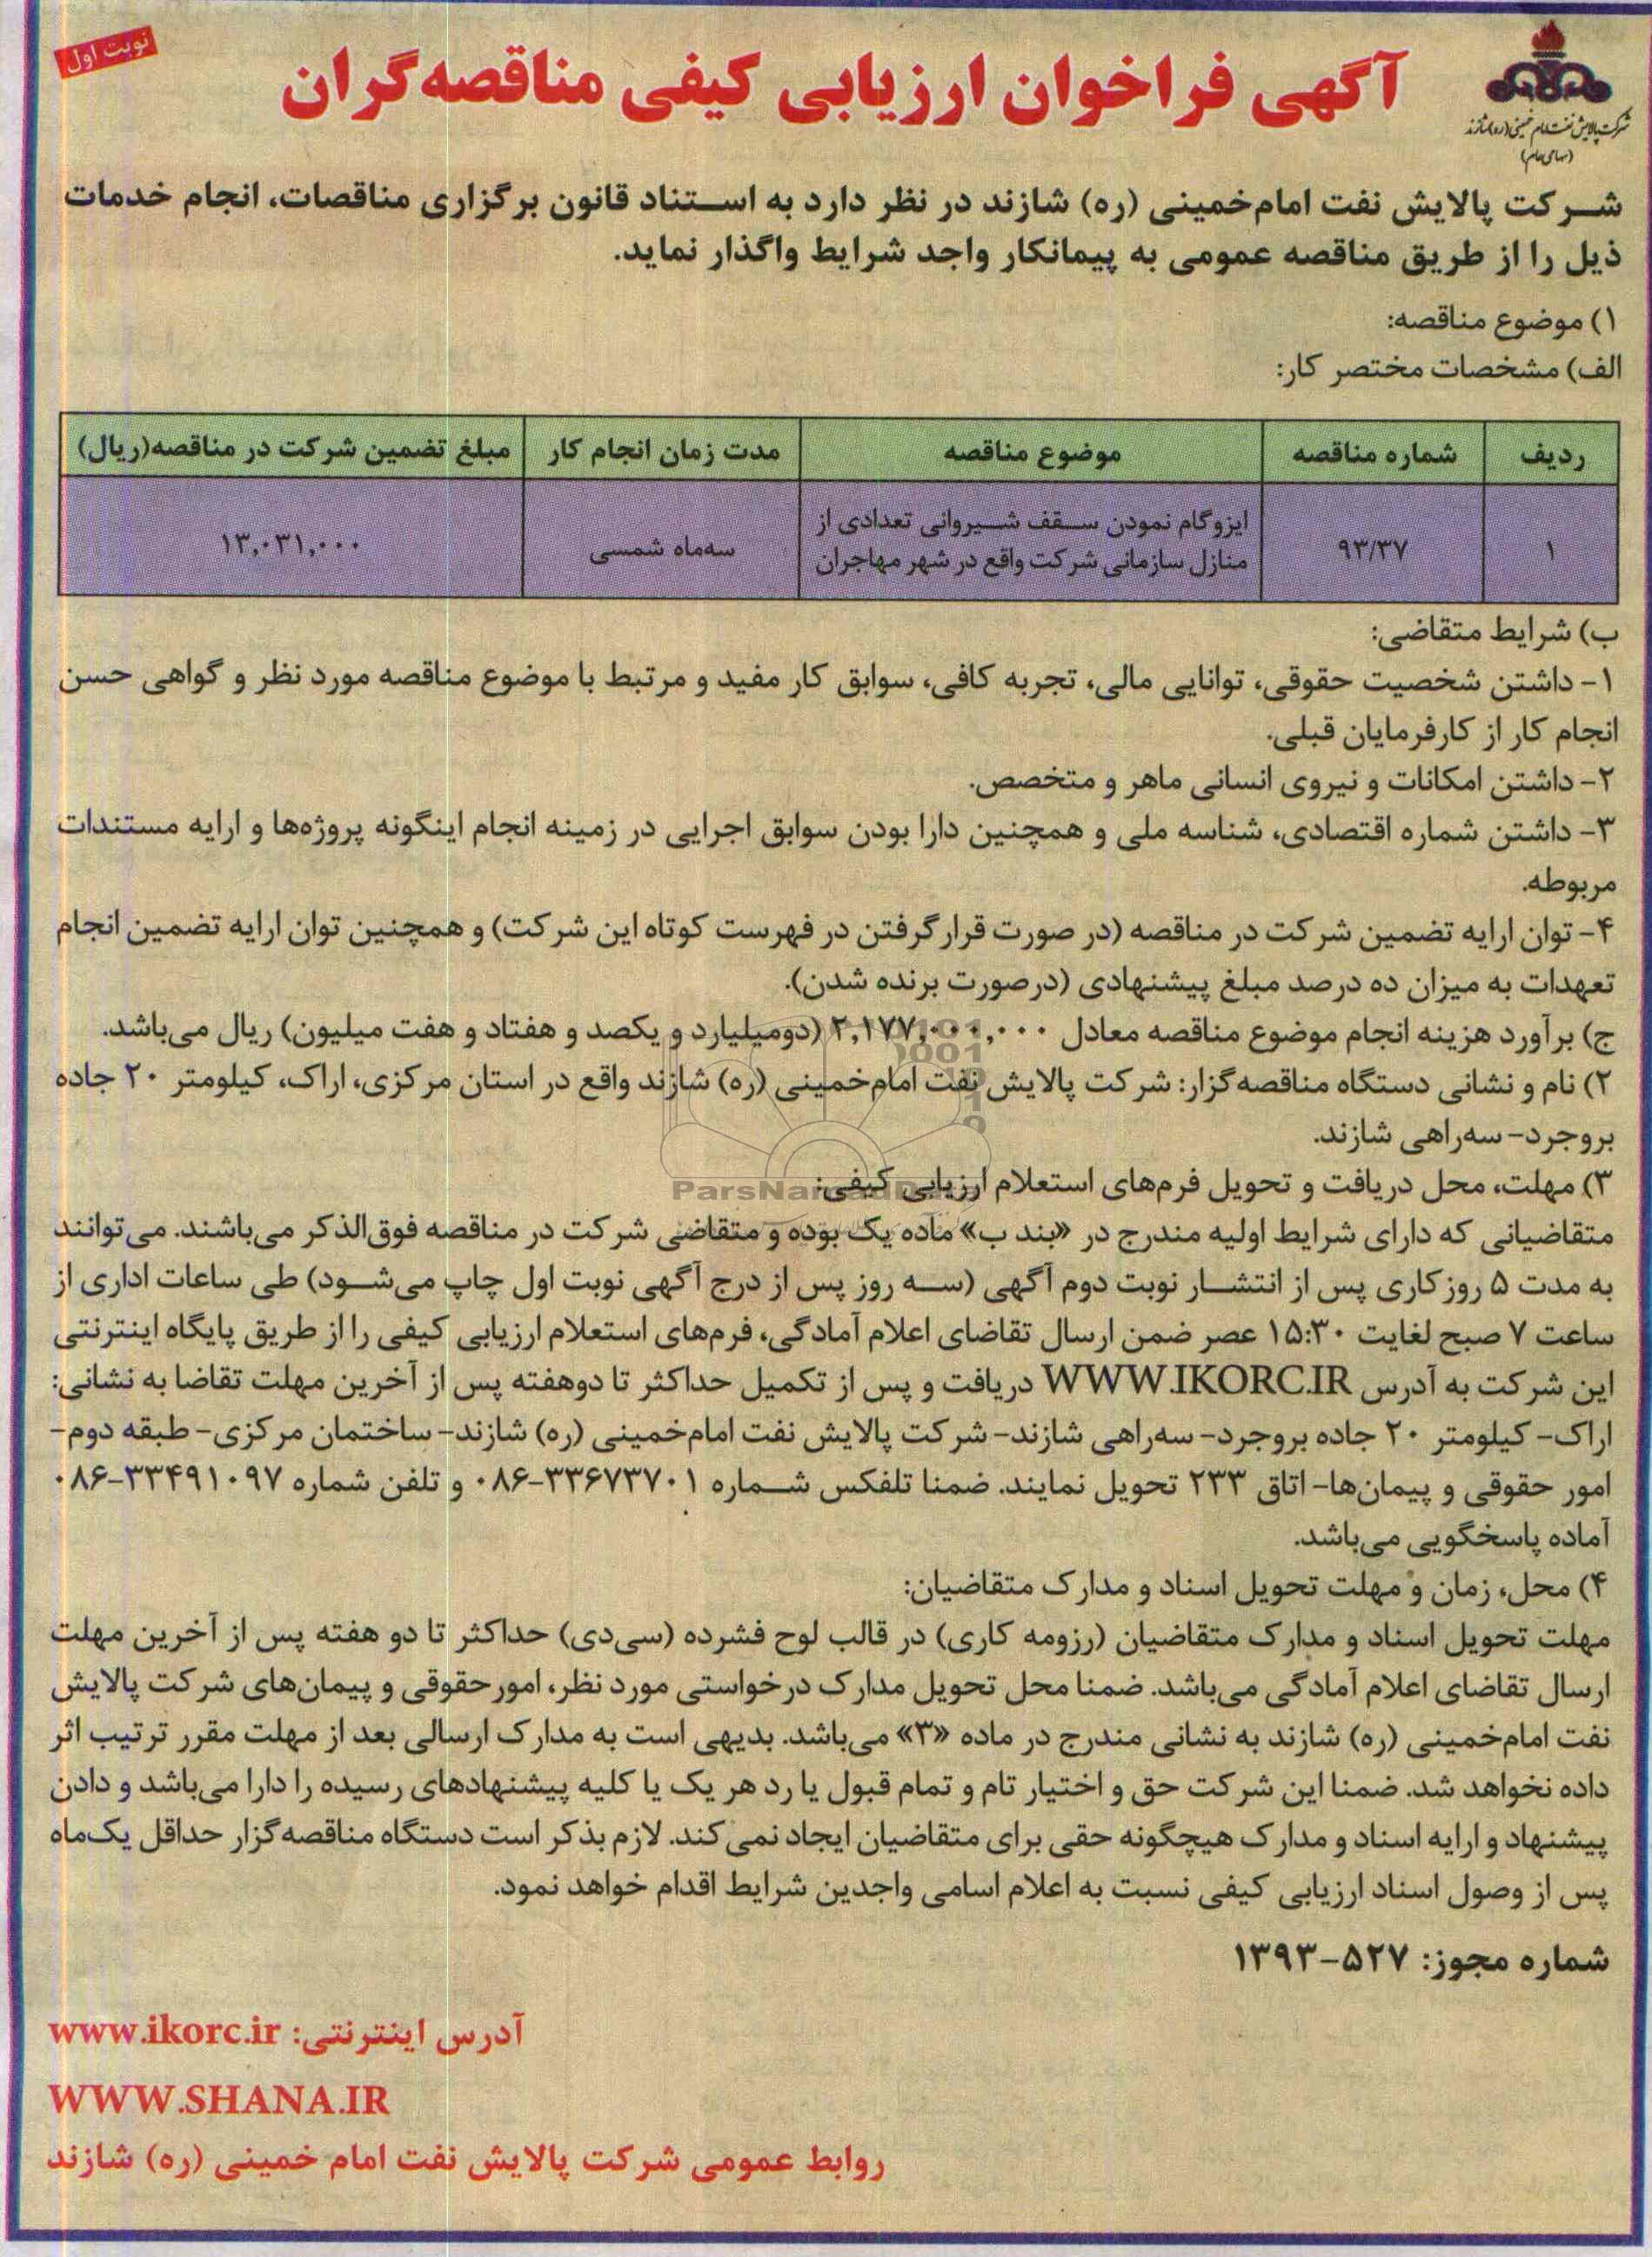 نوبت اول
شرکت پالایش نفت امام خمینی (ره) شازند
(سهامی عام)
آگهی فراخوان ارزیابی کیفی مناقصه‌گران
شرکت پالایش نفت امام‌خمینی (ره) شازند در نظر دارد به استناد قانون برگزاری مناقصات، انجام خدمات
ذیل را از طریق مناقصه عمومی به پیمانکار واجد شرایط واگذار نماید.
۱) موضوع مناقصه:
الف) مشخصات مختصر کار:
ردیف شماره مناقصه موضوع مناقصه مدت زمان انجام کار مبلغ تضمین شرکت در مناقصه(ریال)
۱ ۹۳/۳۷ ایزوگام نمودن سقف شیروانی تعدادی از منازل سازمانی شرکت واقع در شهر مهاجران سه‌ماه شمسی ۱۳,۰۳۱,۰۰۰
ب) شرایط متقاضی:
۱- داشتن شخصیت حقوقی، توانایی مالی، تجربه کافی، سوابق کار مفید و مرتبط با موضوع مناقصه مورد نظر و گواهی حسن
انجام کار از کارفرمایان قبلی.
۲- داشتن امکانات و نیروی انسانی ماهر و متخصص.
۳- داشتن شماره اقتصادی، شناسه ملی و همچنین دارا بودن سوابق اجرایی در زمینه انجام اینگونه پروژه‌ها و ارایه مستندات
مربوطه.
۴- توان ارایه تضمین شرکت در مناقصه (در صورت قرارگرفتن در فهرست کوتاه این شرکت) و همچنین توان ارایه تضمین انجام
تعهدات به میزان ده درصد مبلغ پیشنهادی (درصورت برنده شدن).
ج) برآورد هزینه انجام موضوع مناقصه معادل ۲,۱۷۷,۰۰۰,۰۰۰ (دومیلیارد و یکصد و هفتاد و هفت میلیون) ریال می‌باشد.
۲) نام و نشانی دستگاه مناقصه‌گزار: شرکت پالایش نفت امام‌خمینی (ره) شازند واقع در استان مرکزی، اراک، کیلومتر ۲۰ جاده
بروجرد- سه‌راهی شازند.
۳) مهلت، محل دریافت و تحویل فرم‌های استعلام ارزیابی کیفی:
متقاضیانی که دارای شرایط اولیه مندرج در «بند ب» ماده یک بوده و متقاضی شرکت در مناقصه فوق‌الذکر می‌باشند. می‌توانند
به مدت ۵ روزکاری پس از انتشار نوبت دوم آگهی (سه روز پس از درج آگهی نوبت اول چاپ می‌شود) طی ساعات اداری از
ساعت ۷ صبح لغایت ۱۵:۳۰ عصر ضمن ارسال تقاضای اعلام آمادگی، فرم‌های استعلام ارزیابی کیفی را از طریق پایگاه اینترنتی
این شرکت به آدرس WWW.IKORC.IR دریافت و پس از تکمیل حداکثر تا دوهفته پس از آخرین مهلت تقاضا به نشانی:
اراک- کیلومتر ۲۰ جاده بروجرد- سه‌راهی شازند- شرکت پالایش نفت امام‌خمینی (ره) شازند- ساختمان مرکزی- طبقه دوم-
امور حقوقی و پیمان‌ها- اتاق ۲۳۳ تحویل نمایند. ضمنا تلفکس شماره ۳۳۶۷۳۷۰۱-۰۸۶ و تلفن شماره ۳۳۴۹۱۰۹۷-۰۸۶
آماده پاسخگویی می‌باشد.
۴) محل، زمان و مهلت تحویل اسناد و مدارک متقاضیان:
مهلت تحویل اسناد و مدارک متقاضیان (رزومه کاری) در قالب لوح فشرده (سی‌دی) حداکثر تا دو هفته پس از آخرین مهلت
ارسال تقاضای اعلام آمادگی می‌باشد. ضمنا محل تحویل مدارک درخواستی مورد نظر، امور حقوقی و پیمان‌های شرکت پالایش
نفت امام‌خمینی (ره) شازند به نشانی مندرج در ماده «۳» می‌باشد. بدیهی است به مدارک ارسالی بعد از مهلت مقرر ترتیب اثر
داده نخواهد شد. ضمنا این شرکت حق و اختیار تام و تمام قبول یا رد هر یک یا کلیه پیشنهادهای رسیده را دارا می‌باشد و دادن
پیشنهاد و ارایه اسناد و مدارک هیچگونه حقی برای متقاضیان ایجاد نمی‌کند. لازم بذکر است دستگاه مناقصه‌گزار حداقل یک‌ماه
پس از وصول اسناد ارزیابی کیفی نسبت به اعلام اسامی واجدین شرایط اقدام خواهد نمود.
شماره مجوز: ۵۲۷-۱۳۹۳
آدرس اینترنتی: www.ikorc.ir
WWW.SHANA.IR
روابط عمومی شرکت پالایش نفت امام خمینی (ره) شازند